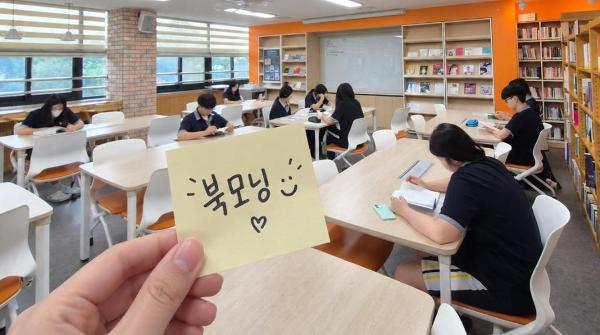 북모닝